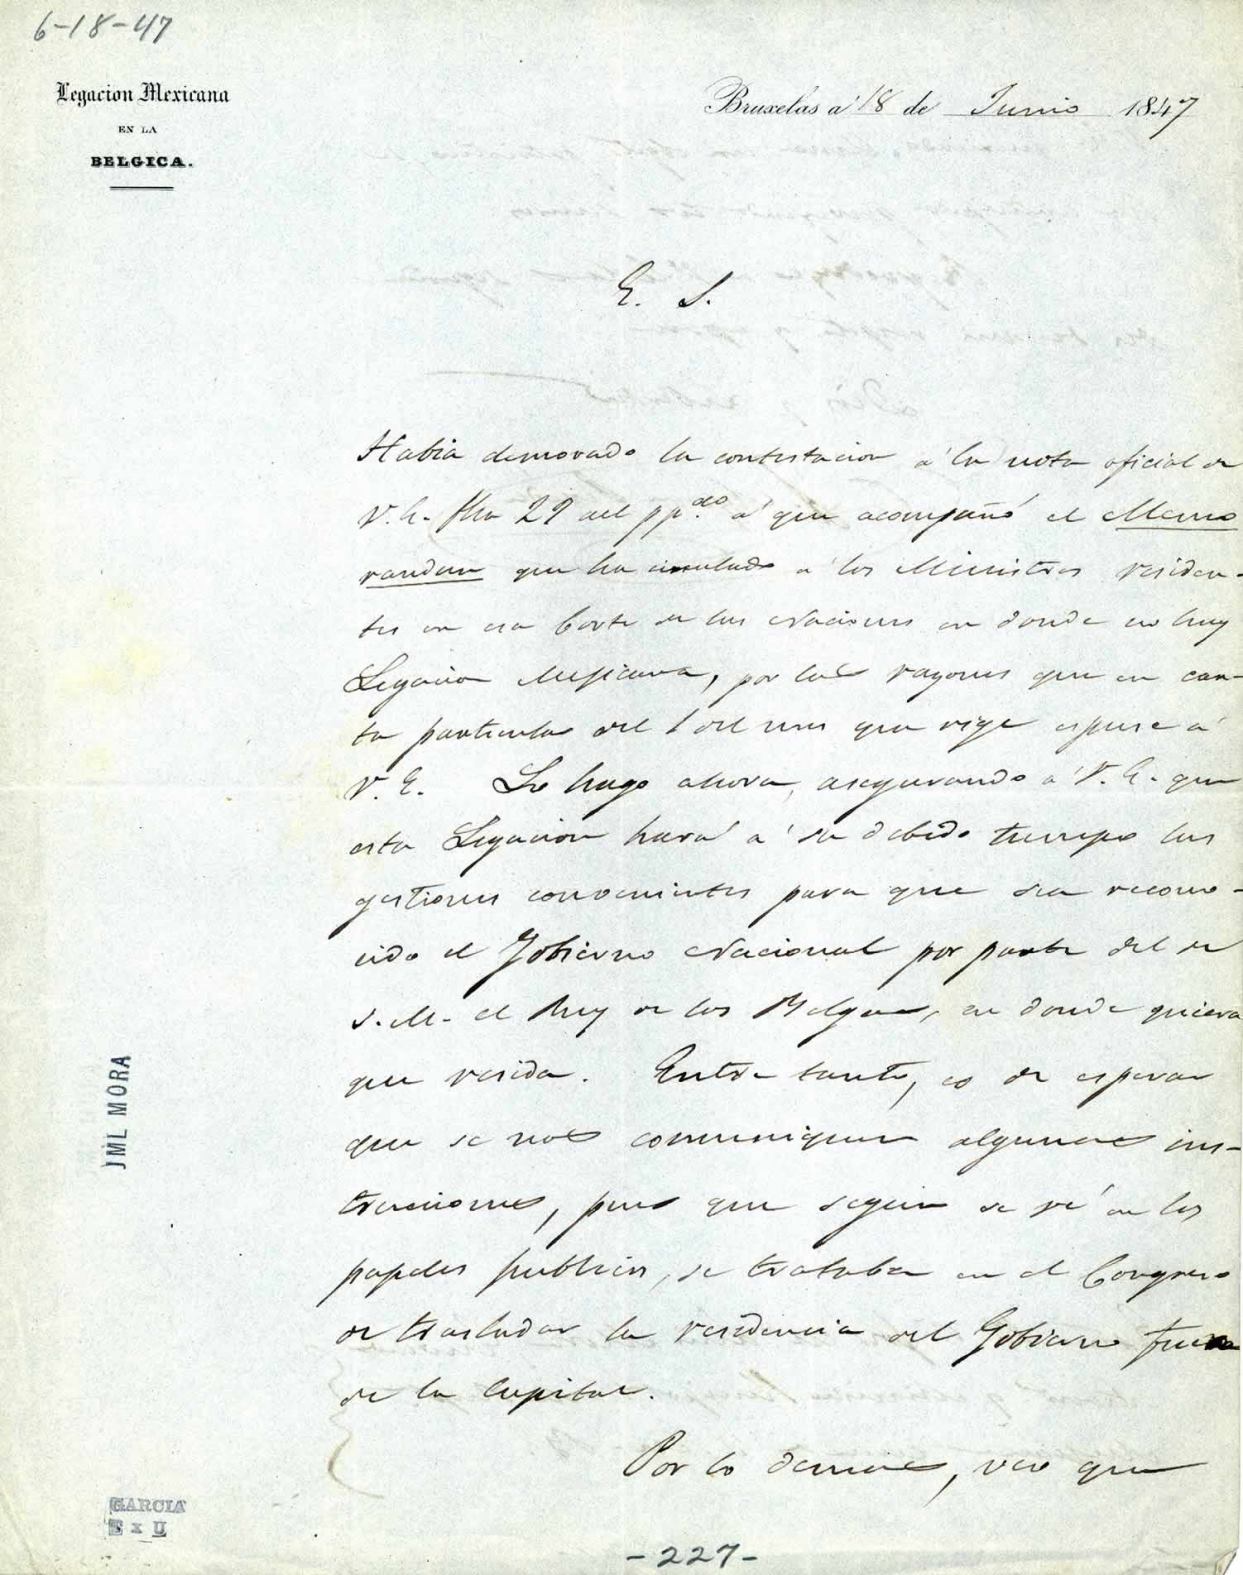 6-18-47
Legacion Mexicana
EN LA
BELGICA.
Bruxelas a 18 de Junio 1847
E. S.
Habia demorado la contestacion á la nota oficial de
V. E. fha 29 del pp.do á que acompañó el Memo
randum que ha circulado a los Ministros residen-
tes en esa Corte de las Naciones en donde no hay
Legacion Mejicana, por las razones que en car-
ta particular del 1 del mes que rige espuse á
V. E. Lo hago ahora, asegurando á V. E. que
esta Legacion hará á su debido tiempo las
gestiones convenientes para que sea recono-
cido el Gobierno Nacional por parte del de
S. M. el Rey de los Belgas, en donde quiera
que resida. Entre tanto, es de esperar
que se nos comuniquen algunas ins-
trucciones, pues que segun se vé en los
papeles publicos, se trataba en el Congreso
de trasladar la residencia del Gobierno fuera
de la Capital.
Por lo demas, veo que
JML MORA
GARCIA
-227-